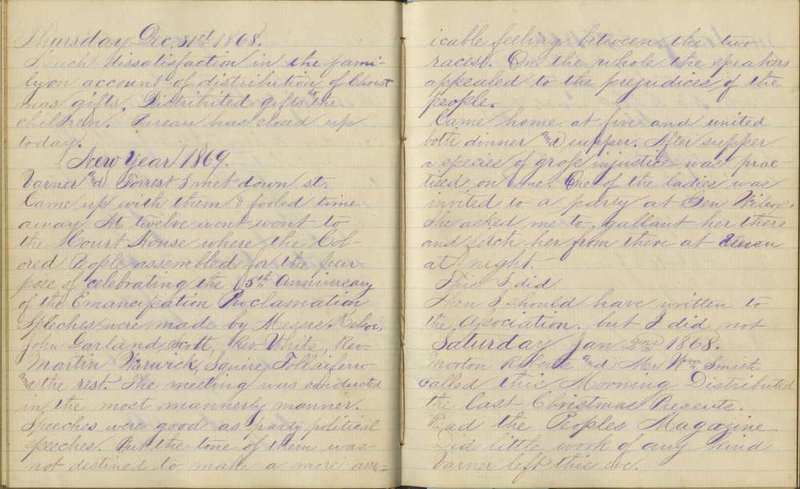 Thursday Dec 31st 1868.
Much dissatisfaction in the fami-
ly on account of distribution of Christ
mas gifts. Distributed gifts to the
children. Bureau was closed up
today.
New Year 1869.
Varner and Forrest I met down st.
Came up with them & fooled time
away. At twelve went went to
the Court House where the Col-
ored People assembled for the pur
pose of celebrating the 5th Anniversary
of the Emancipation Proclamation
Speeches were made by
John Garland Scott, Rev White, Rev.
Martin Warwick, Squire Tolliaferro
and the rest. The meeting was conducted
in the most mannerly manner.
Speeches were good as party political
speeches. But the tone of them was
not destined to make a more am-
icable feeling between the two
races. On the whole the speakers
appealed to the prejudices of the
people.
Came home at five and united
both dinner and supper. After supper
a species of gross injustice was prac-
tised on me. One of the ladies was
invited to a party at Gen
She asked me to gallant her there
and fetch her from there at eleven
at night.
This I did
I should have written to
the Asociation. but I did not
Saturday Jan 2nd 1868.
Morton and Mrs Wm Smith
called this Morning Distributed
the last Christmas Presents.
Read the Peoples Magazine
Did little work of any kind
Varner left this eve.